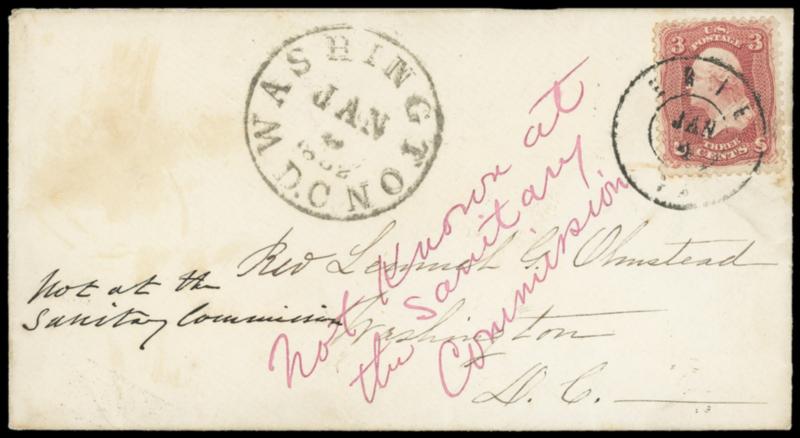 WASHINGTON
D.C.
JAN
1862
U.S. POSTAGE
3 3
THREE CENTS
ERIE
JAN
PA
Rev C. Olmstead
Washington
D. C.
Not at the
Sanitary Commission
Not Known at
the Sanitary
Commission